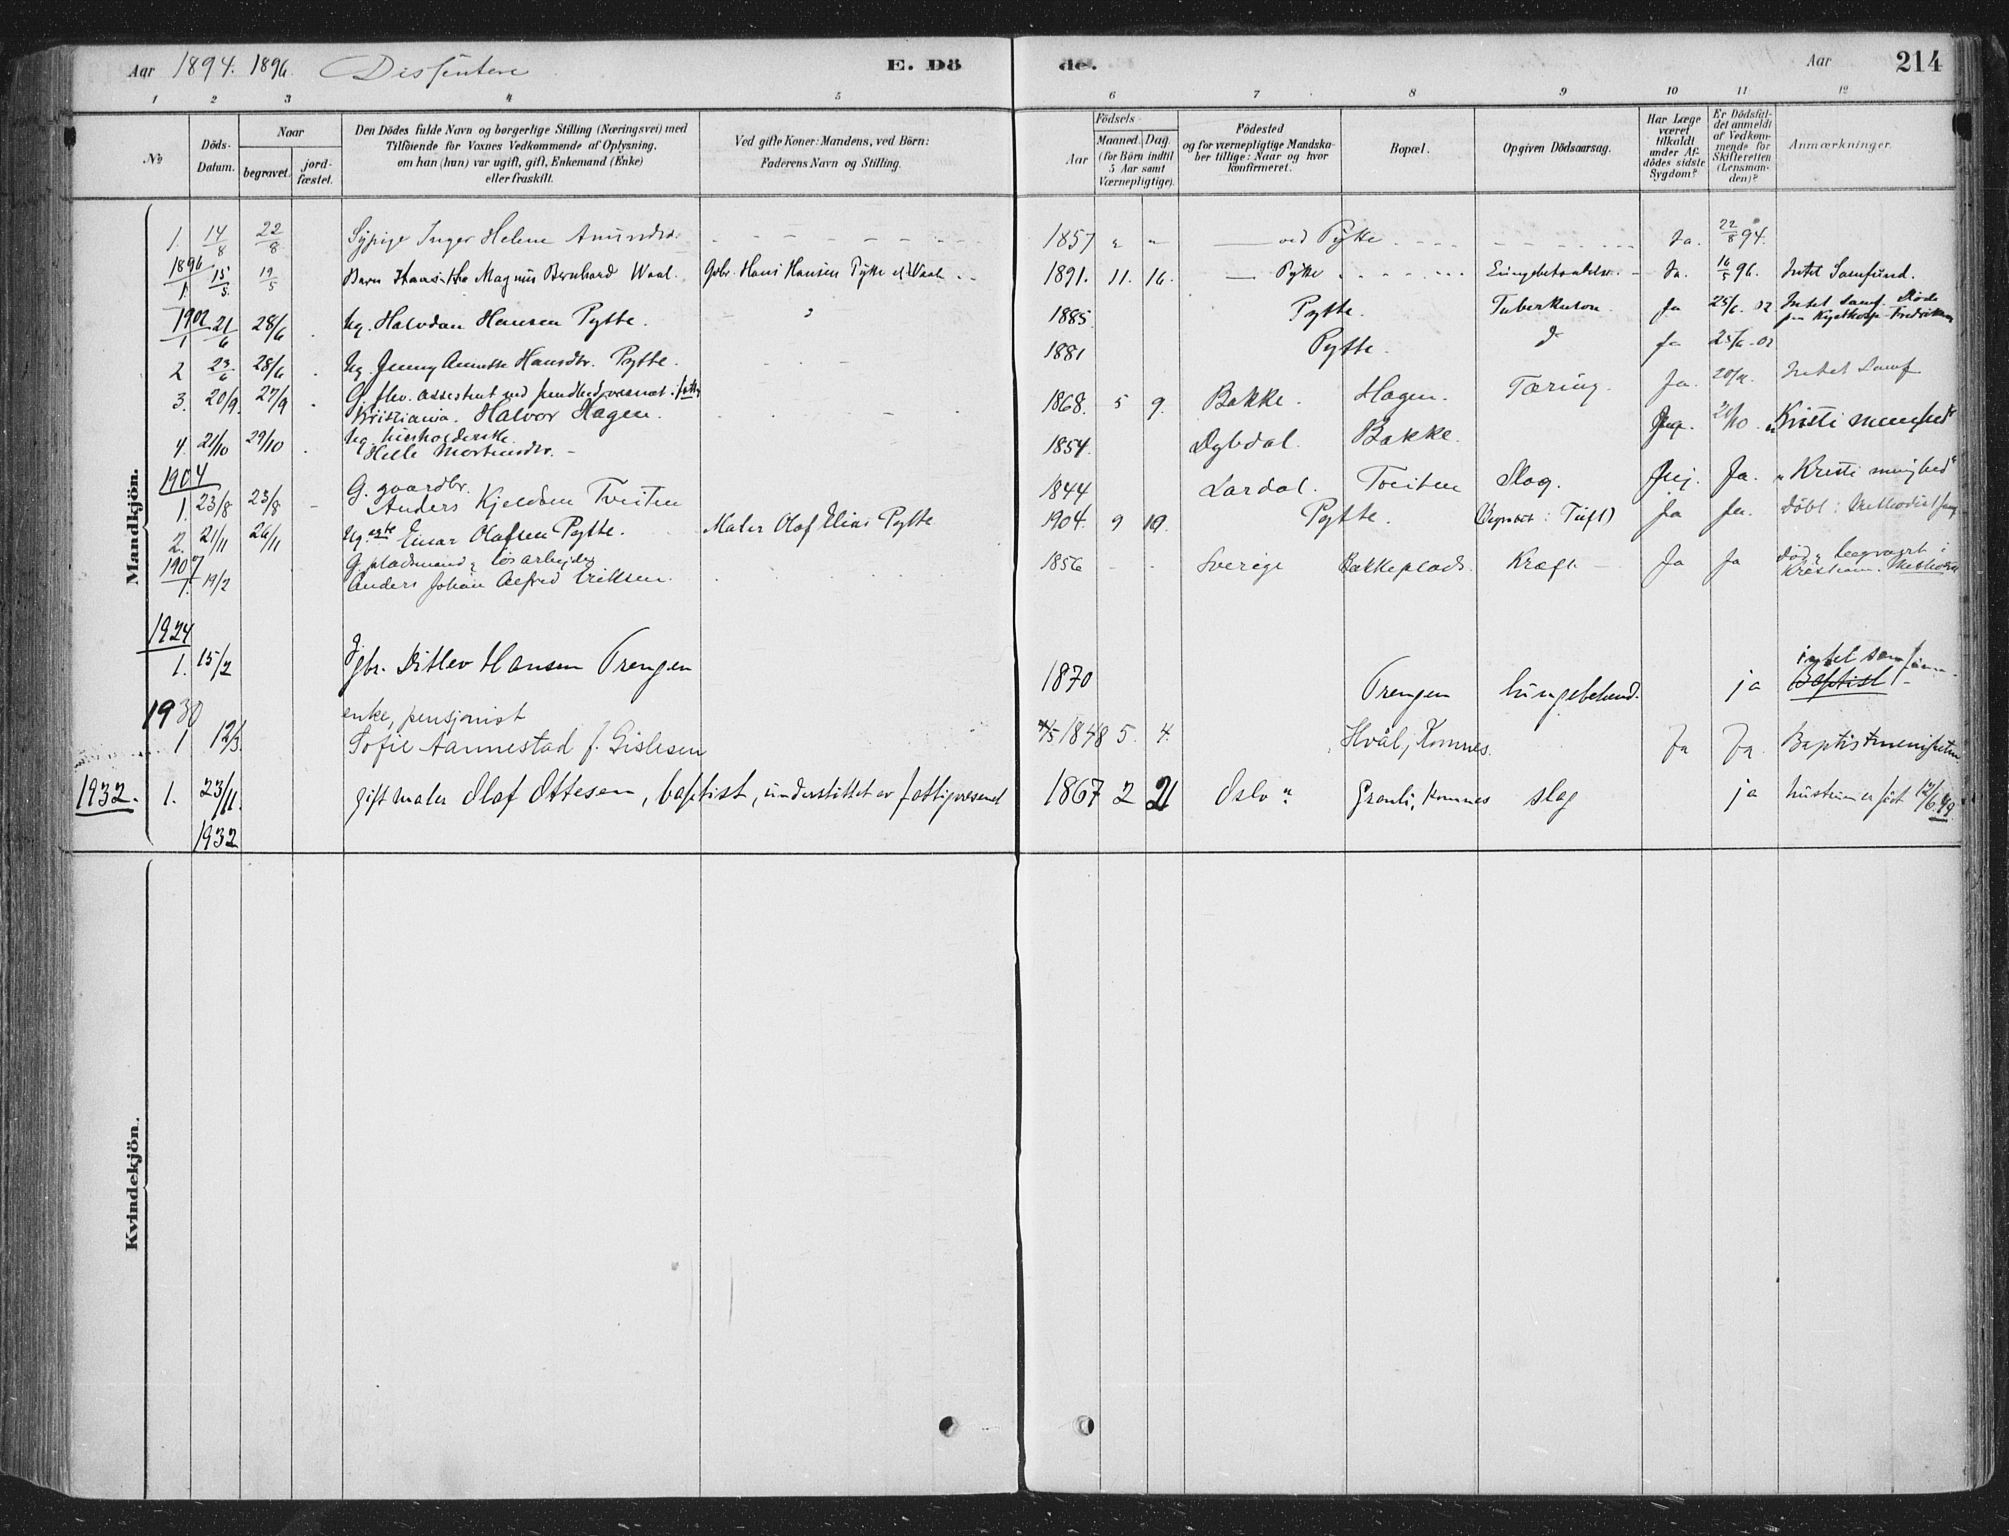 Aar 1894. 1896. Dissentere E. Dö de. Aar 214
1 2 3 4 5 6 7 8 9 10 11 12
No
Döds-Datum.
Naar begravet. jord-fæstet.
Den Dödes fulde Navn og borgerlige Stilling (Næringsvei) med Tilföiende for Voxnes Vedkommende af Oplysning, om han (hun) var ugift, gift, Enkemand (Enke) eller fraskilt.
Ved gifte Koner: Mandens, ved Börn: Faderens Navn og Stilling.
Födsels Aar Maaned. Dag. (for Börn indtil 5 Aar samt Værnepligtige).
Födested og for værnepligtige Mandskaber tillige: Naar og hvor konfirmeret.
Bopæl.
Opgiven Dödsaarsag.
Har Læge været tilkaldt under Afdödes sidste Sygdom?
Er Dödsfaldet anmeldt af Vedkommende for Skifteretten (Lensmanden)?
Anmærkninger.
Mandkjön.
1. 14/8 22/8 Sypige Inger Helene Amundsd. 1857 " " ved Pytte Ja. 22/8 94.
1896
1 15/5 19/5 Barn Hans Magnus Bernhard Waal. Gbr. Hans Hansen Pytte Waal 1891. 11. 16. Pytte Ja. 16/5 96. Intet Samfund.
1902
1 21/6 28/6 Ug. Halvdan Hansen Pytte. 1885 Pytte. Tuberkulose Ja 25/6 02 Intet Samf. Døde
2 23/6 28/6 Ug. Jenny Annette Hansdtr. Pytte. 1881 Pytte. d ja 25/6 02
3. 20/9. 27/9 G. assistent ved
Kristiania. Halvor Hagen. 1868. 5 9. Bakke. Hagen. Tæring. Ja. Intet Samf
4. 21/10 29/10 Ug. husholderske
Helle Mortensdtr. 1854. Dybdal. Bakke. "Kristi menighed"
1904
1. 23/8 23/8 G. gaardbr.
Anders Kjeldsen Tveiten 1844 Lardal. Tveiten Slag. Nej. Ja. "Kristi menighed"
2. 21/11 26/11 Ug. Einar Olafsen Pytte. Maler Olaf Elias Pytte 1904. 9 19. Pytte. Ja Ja. døbt: Methodist
1907
1. 19/2 G. pladsmand, løsarbejder
Anders Johan Alfred Eriksen. 1856 Sverige Bakkeplads. Kræft Ja Ja død
1924
1. 15/2 Gbr. Ditlev Hansen Trengen 1870 Trengen lungebetend. ja intet samfunn
Baptist
1930
1 12/3. enke, pensjonist
Sofie Aannestad f. Gislesen 4/5 1848 5. 4. Hvål, Komnes. Ja Ja. Baptistmenigheten
1932. 1. 23/11. gift maler Olaf Ottesen, baptist, understøttet av fattigvesenet 1867 2 21 Oslo Granli, Komnes slag ja hustruen er født 12/6
1932
Kvindekjön.